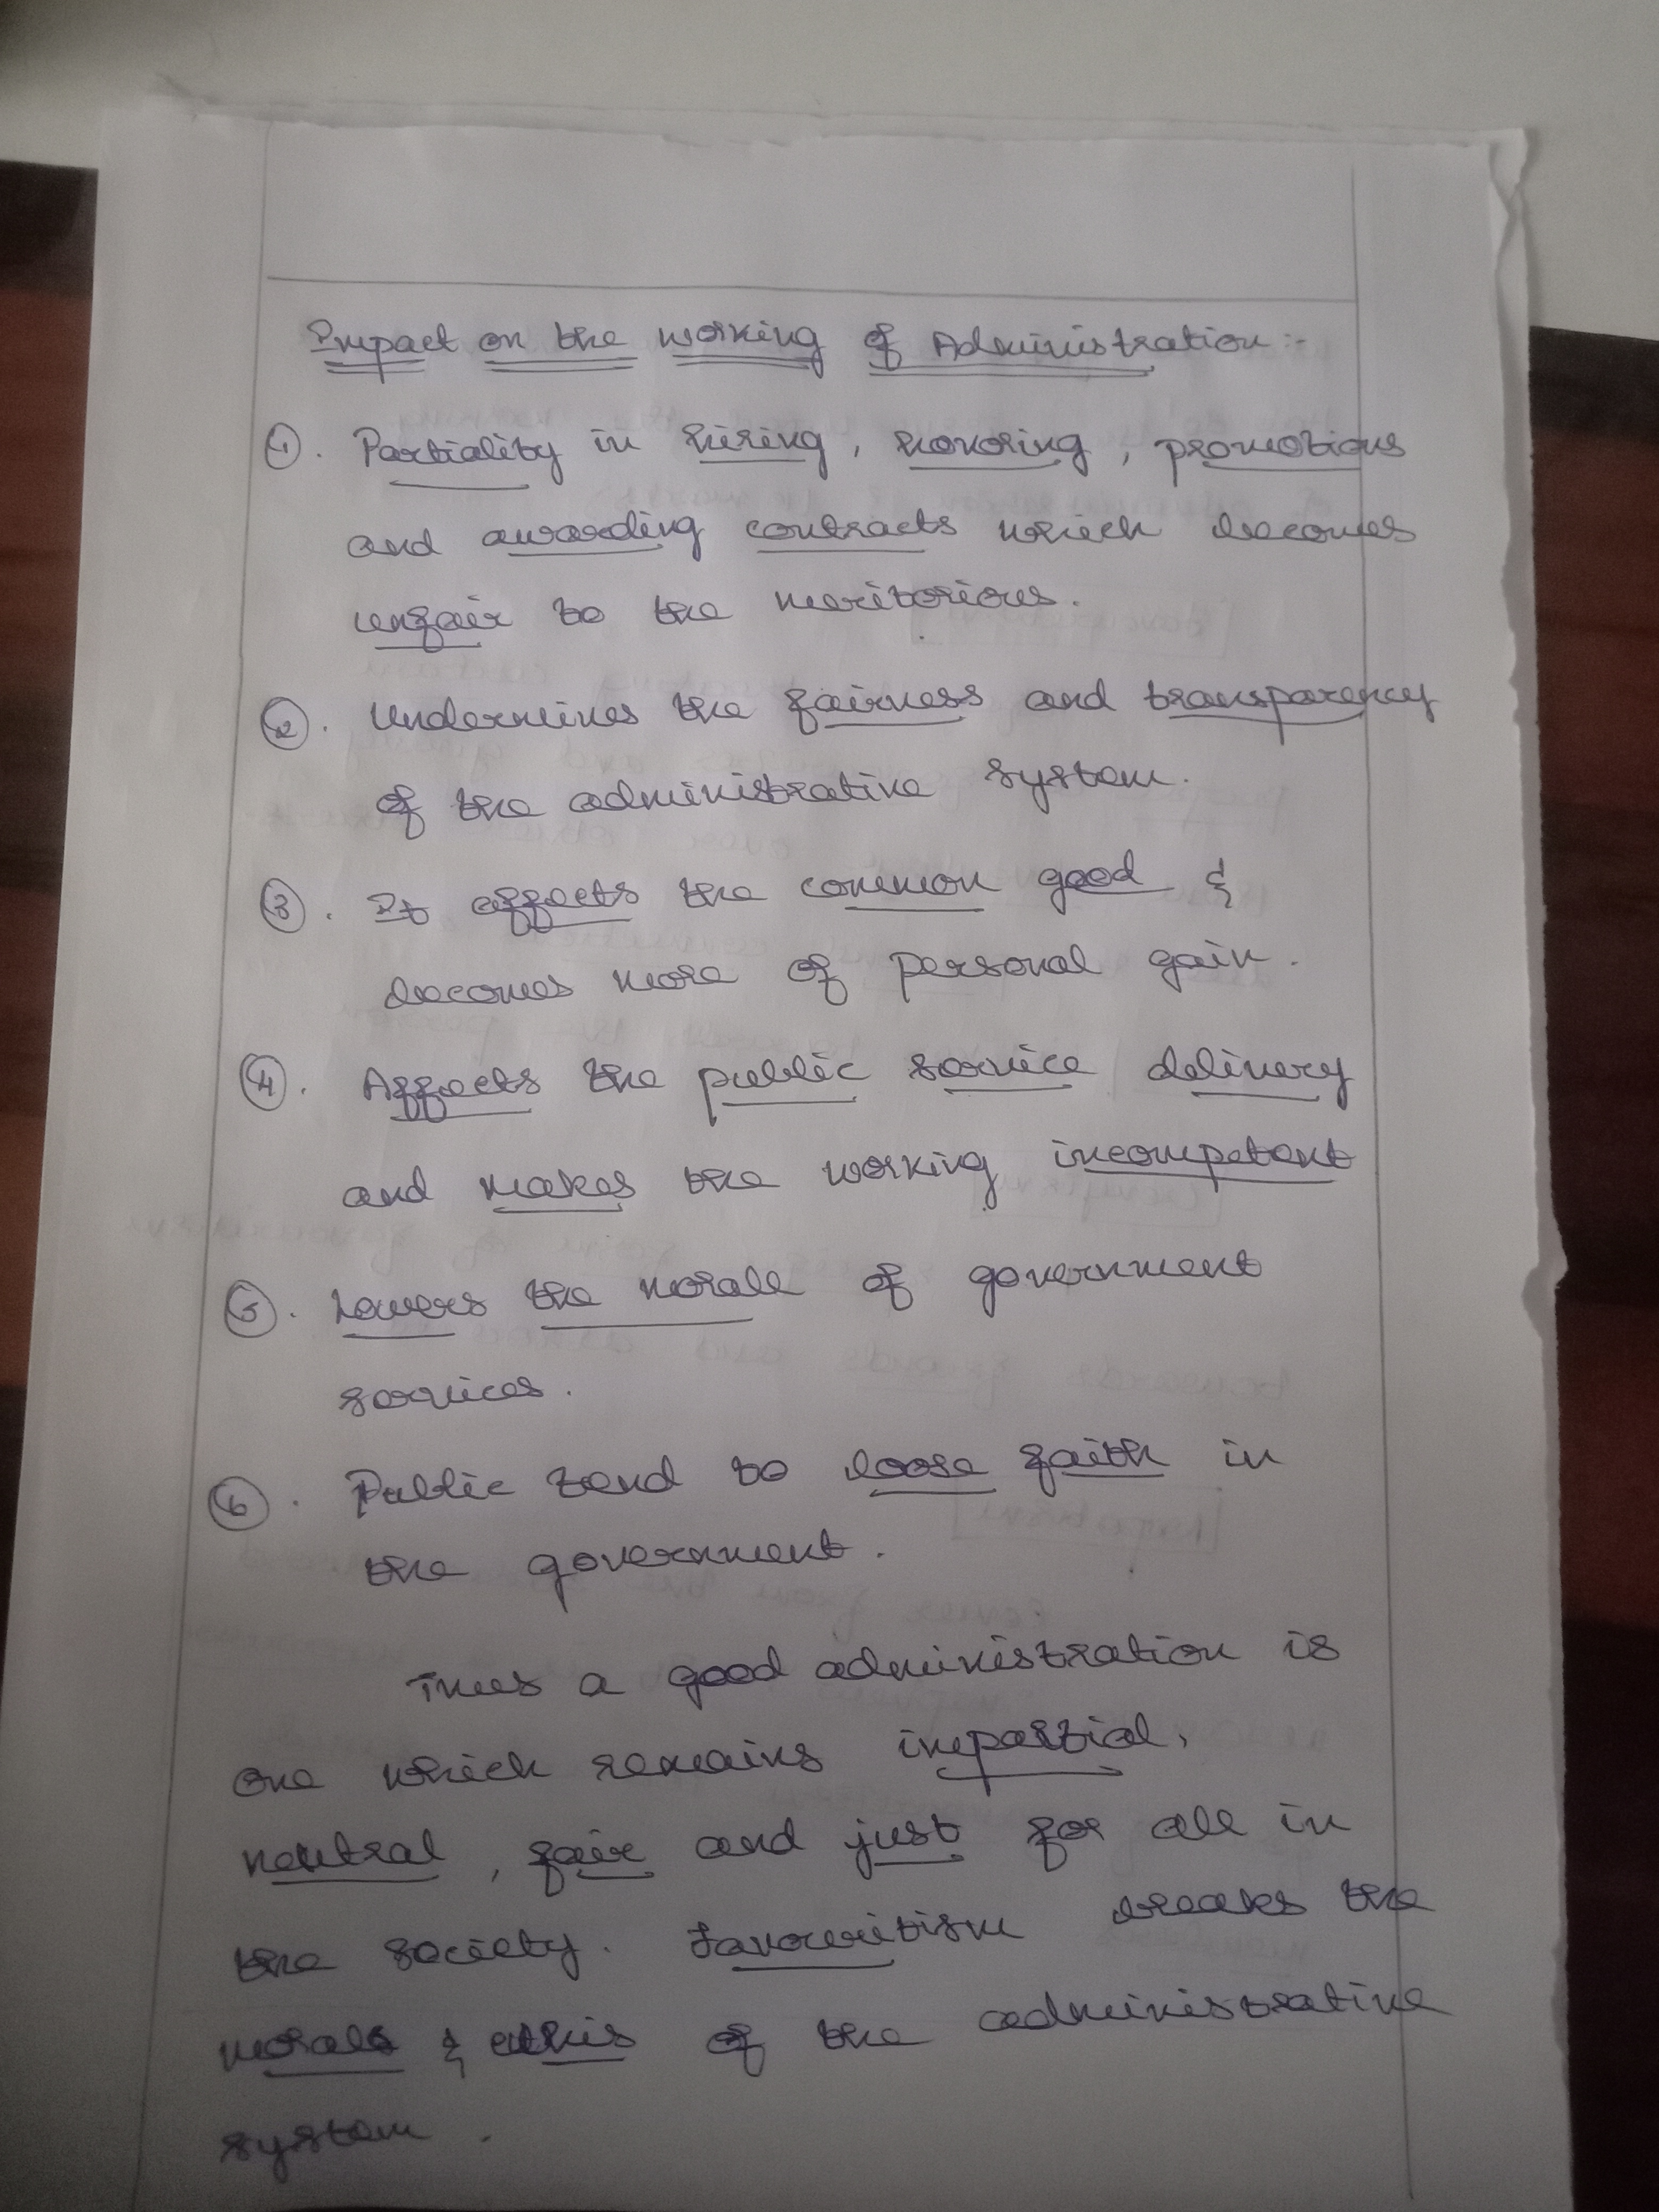 Impact on the working of Administration :-
1. Partiality in hiring, honoring, promotions
and awarding contracts which becomes
unfair to the meritorious.
2. Undermines the fairness and transparency
of the administrative system.
3. It affects the common good &
becomes more of personal gain.
4. Affects the public service delivery
and makes the working incompetent
5. Lowers the morale of government
services.
6. Public tend to loose faith in
the government.
Thus a good administration is
one which remains impartial,
neutral, fair and just for all in
the society. Favouritism breaks the
morals & ethis of the administrative
system.